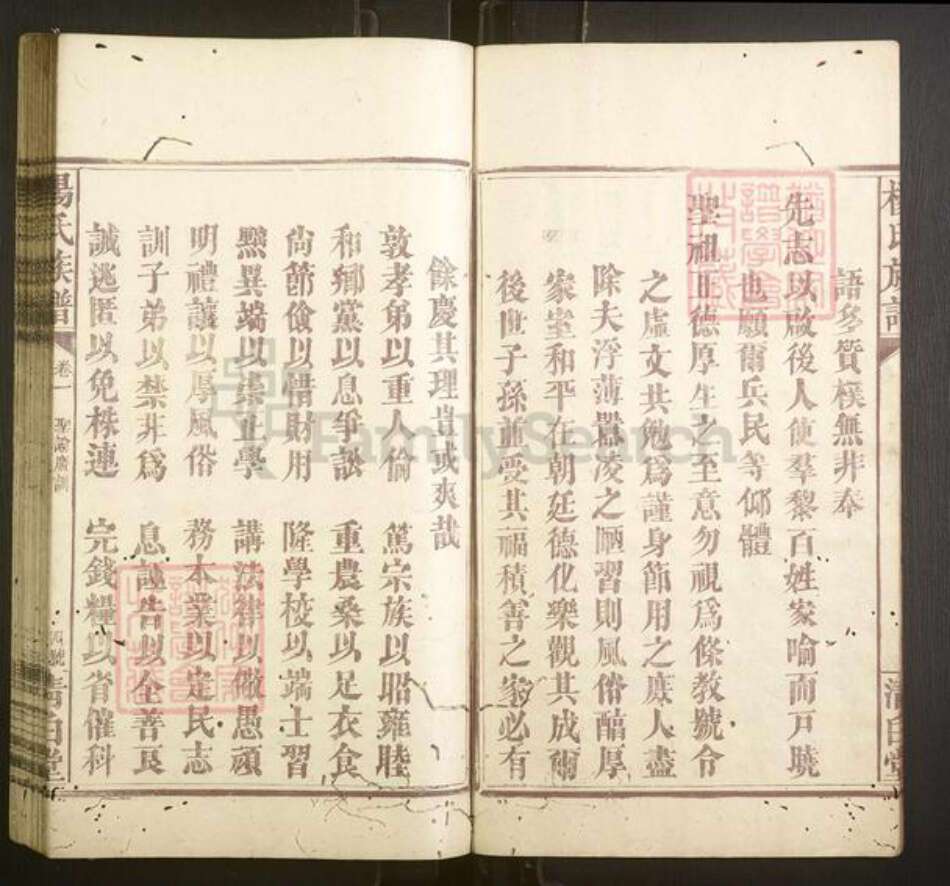 楊氏族譜
清白堂
語多質樸無非奉
先志以啟後人使羣黎百姓家喻而戶曉
也願爾兵民等仰體
聖祖正德厚生之至意勿視爲條教號令
之虛文共勉爲謹身節用之庶人盡
除夫浮薄囂凌之陋習則風俗醕厚
家室和平在朝廷德化樂觀其成爾
後世子孫並受其福積善之家必有
餘慶其理豈或爽哉
敦孝弟以重人倫 篤宗族以昭雍睦
和鄉黨以息爭訟 重農桑以足衣食
尚節儉以惜財用 隆學校以端士習
黜異端以崇正學 講法律以儆愚頑
明禮讓以厚風俗 務本業以定民志
訓子弟以禁非爲 息誣告以全善良
誡逃匿以免株連 完錢糧以省催科
楊氏族譜 卷一 聖諭廣訓
清白堂
FamilySearch